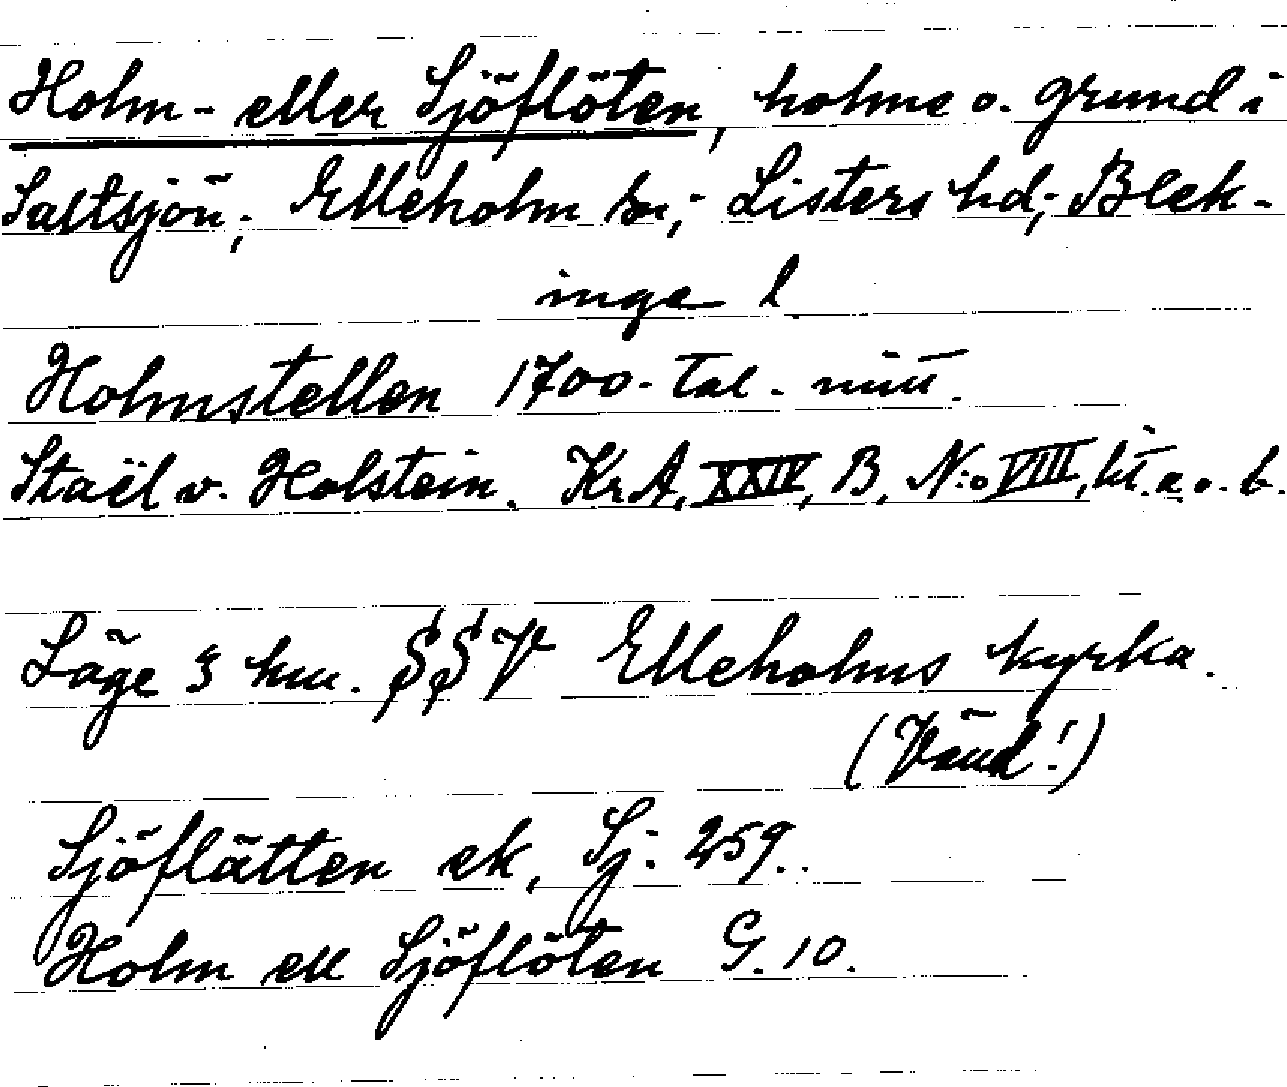 Holm- eller Sjöflöten, holme o. grund i
Saltsjön; Elleholm sn; Listers hd; Blek-
inge l.
Holmstellen 1700-tal. mitt.
Staël v. Holstein. Kr.A, XXIV, B, N:o VIII, litt. a. o. b.
Läge 3 km. SSV Elleholms kyrka.
(Vänd!)
Sjöflätten ek, Sj. 259.
Holm ell Sjöflöten G. 10.